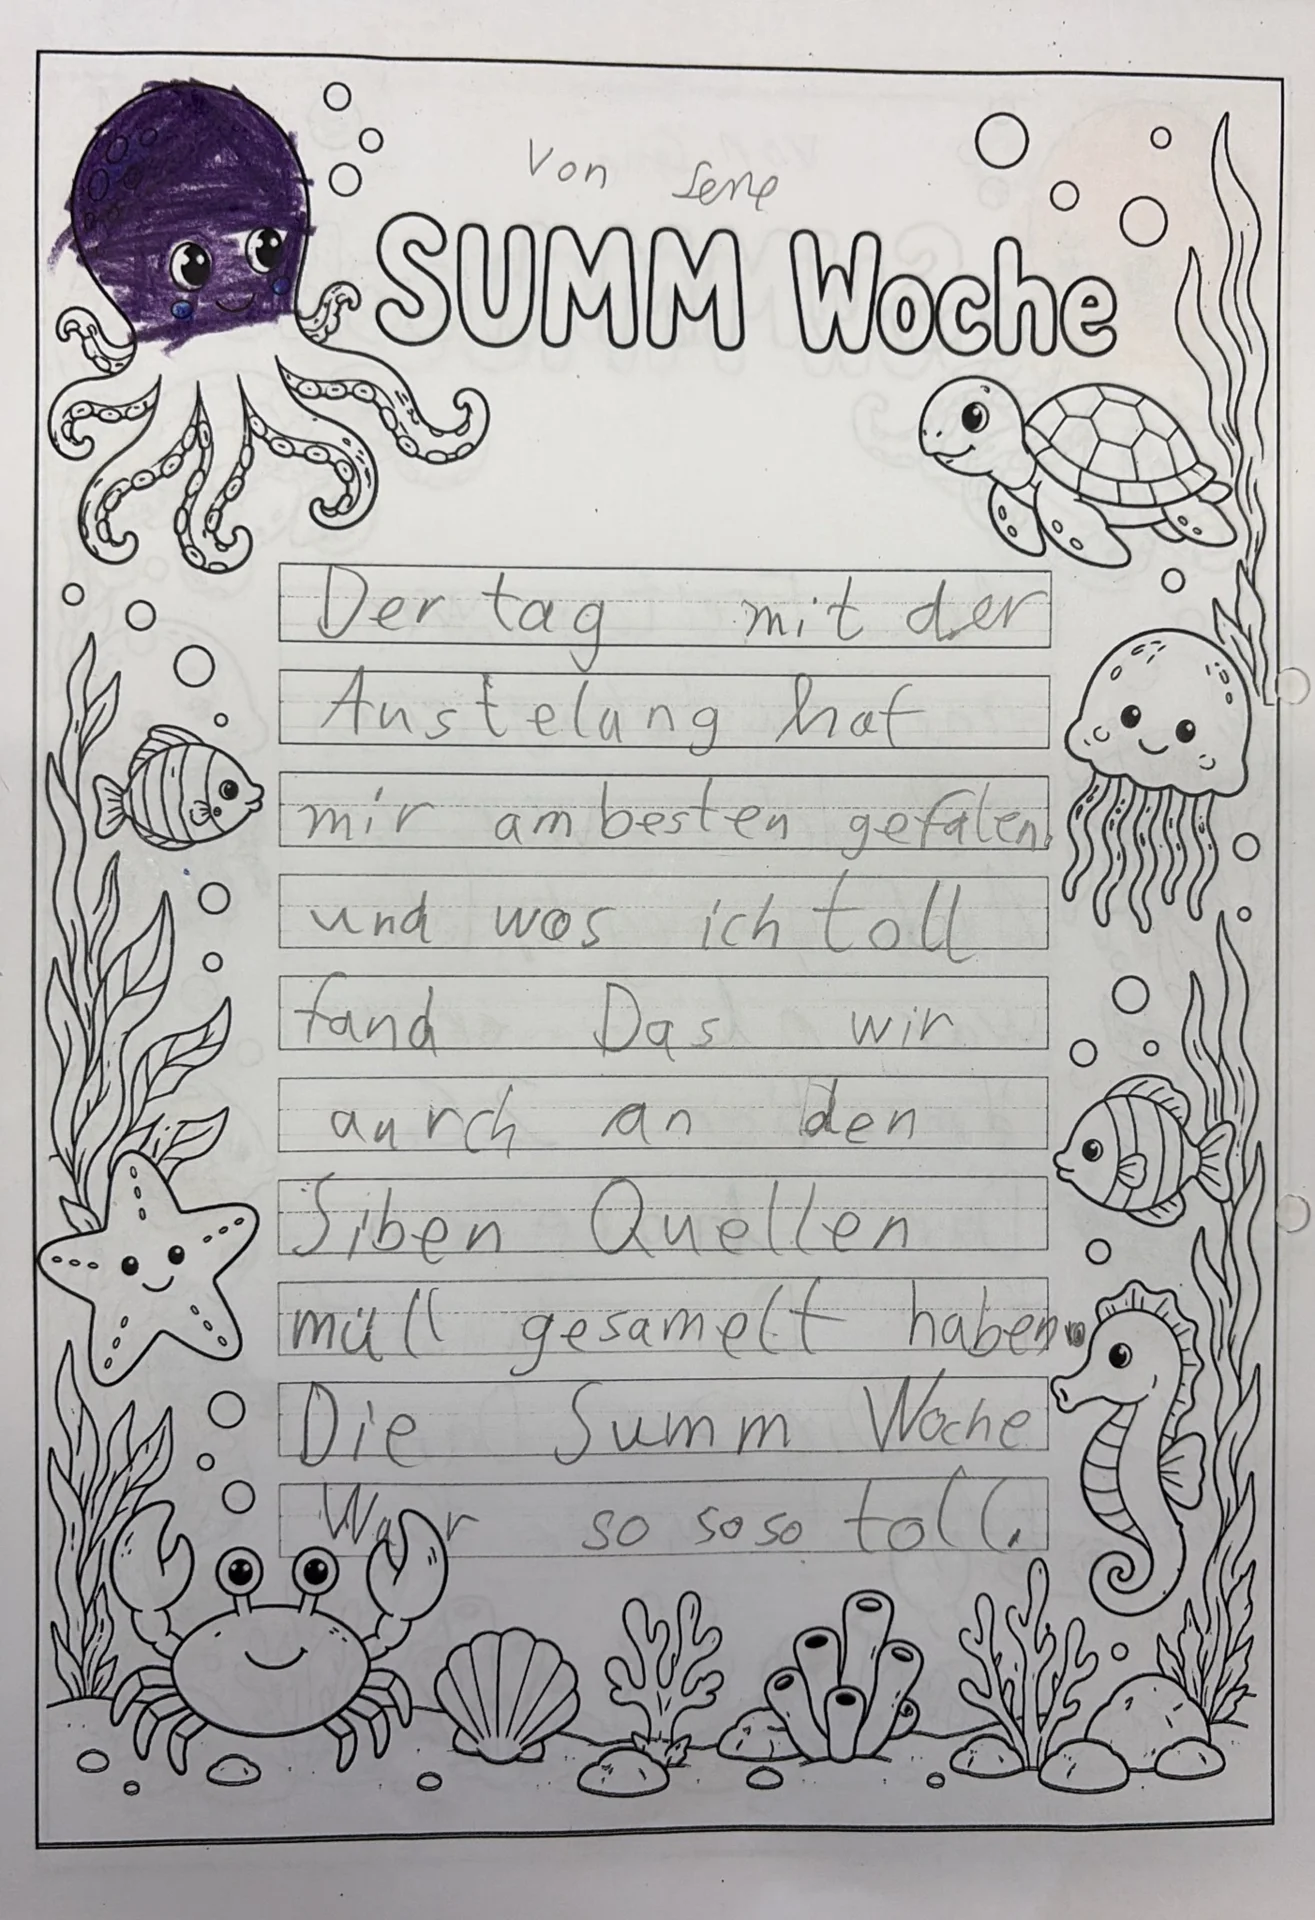 Von Lene
SUMM Woche
Der tag mit der
Austelung hat
mir am besten gefalen.
und was ich toll
fand Das wir
aurch an den
Siben Quellen
müll gesamelt haben.
Die Summ Woche
War so so so toll.